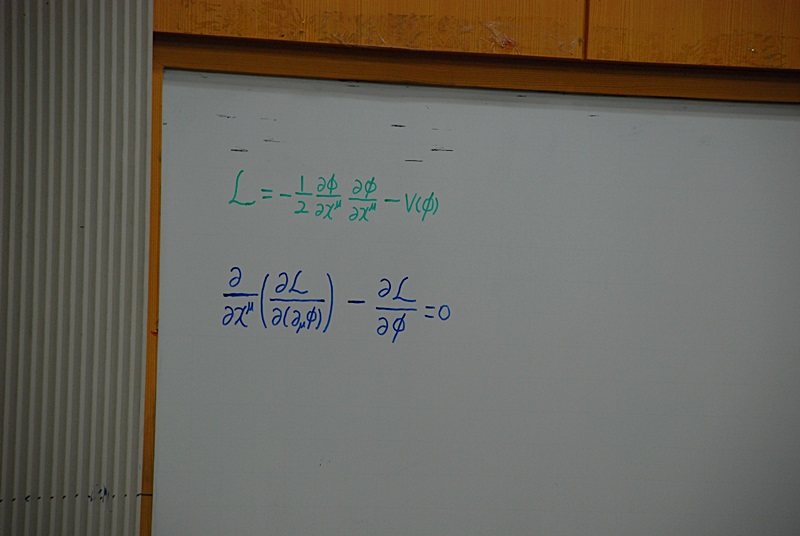 L = -\frac{1}{2} \frac{∂φ}{∂x^μ} \frac{∂φ}{∂x^μ} - V(φ)
\frac{∂}{∂x^μ} \left( \frac{∂L}{∂(∂_μφ)} \right) - \frac{∂L}{∂φ} = 0